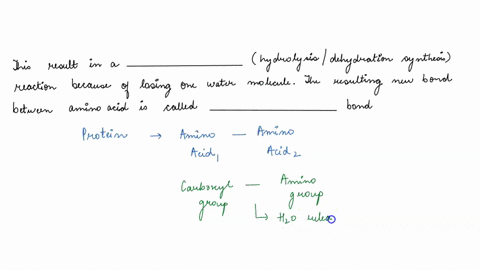 This result in a ____________ (hydrolysis/dehydration synthesis)
reaction because of losing one water molecule. The resulting new bond
between amino acid is called ____________ bond
Protein → Amino — Amino
Acid1 Acid2
Carboxyl — Amino
group group
↳ H2O relea